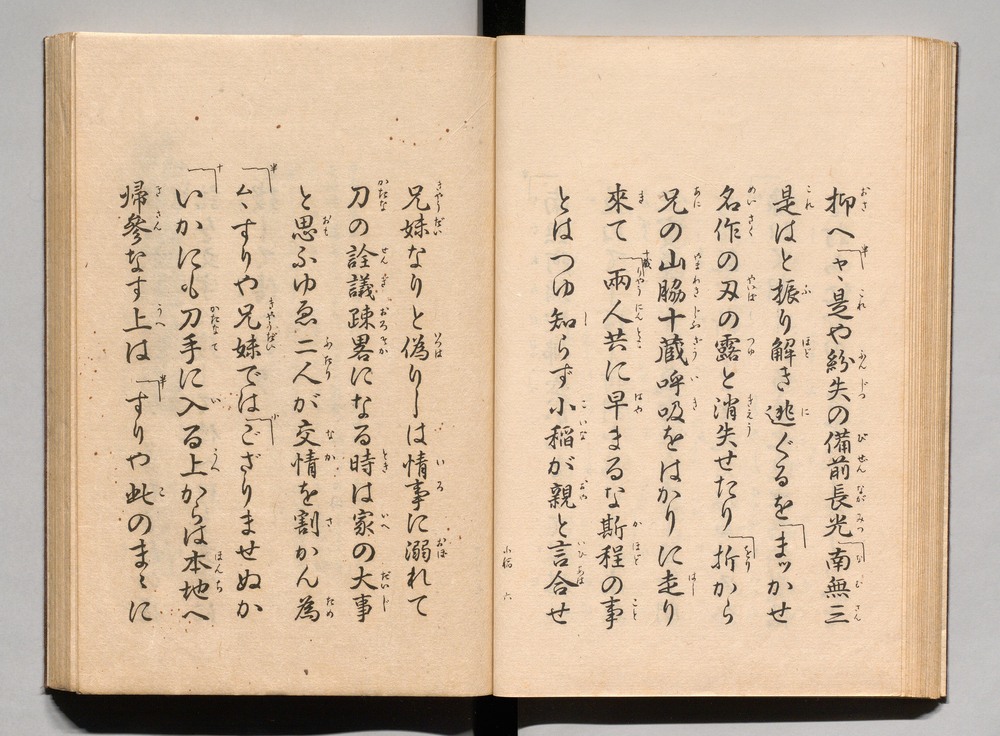 抑へ「ヤヽ是や紛失の備前長光「南無三
是はと振り解き逃ぐるを「まッかせ
名作の刃の露と消失せたり「折から
兄の山脇十蔵呼吸をはかりに走り
來て「兩人共に早まるな斯程の事
とはつゆ知らず小稲が親と言合せ
小稲 六
兄妹なりと偽りしは情事に溺れて
刀の詮議踈畧になる時は家の大事
と思ふゆゑ二人が交情を割かん為
「すりや兄妹では「ござりませぬか
「いかにも刀手に入る上からは本地へ
帰參なす上は「すりや此のまゝに